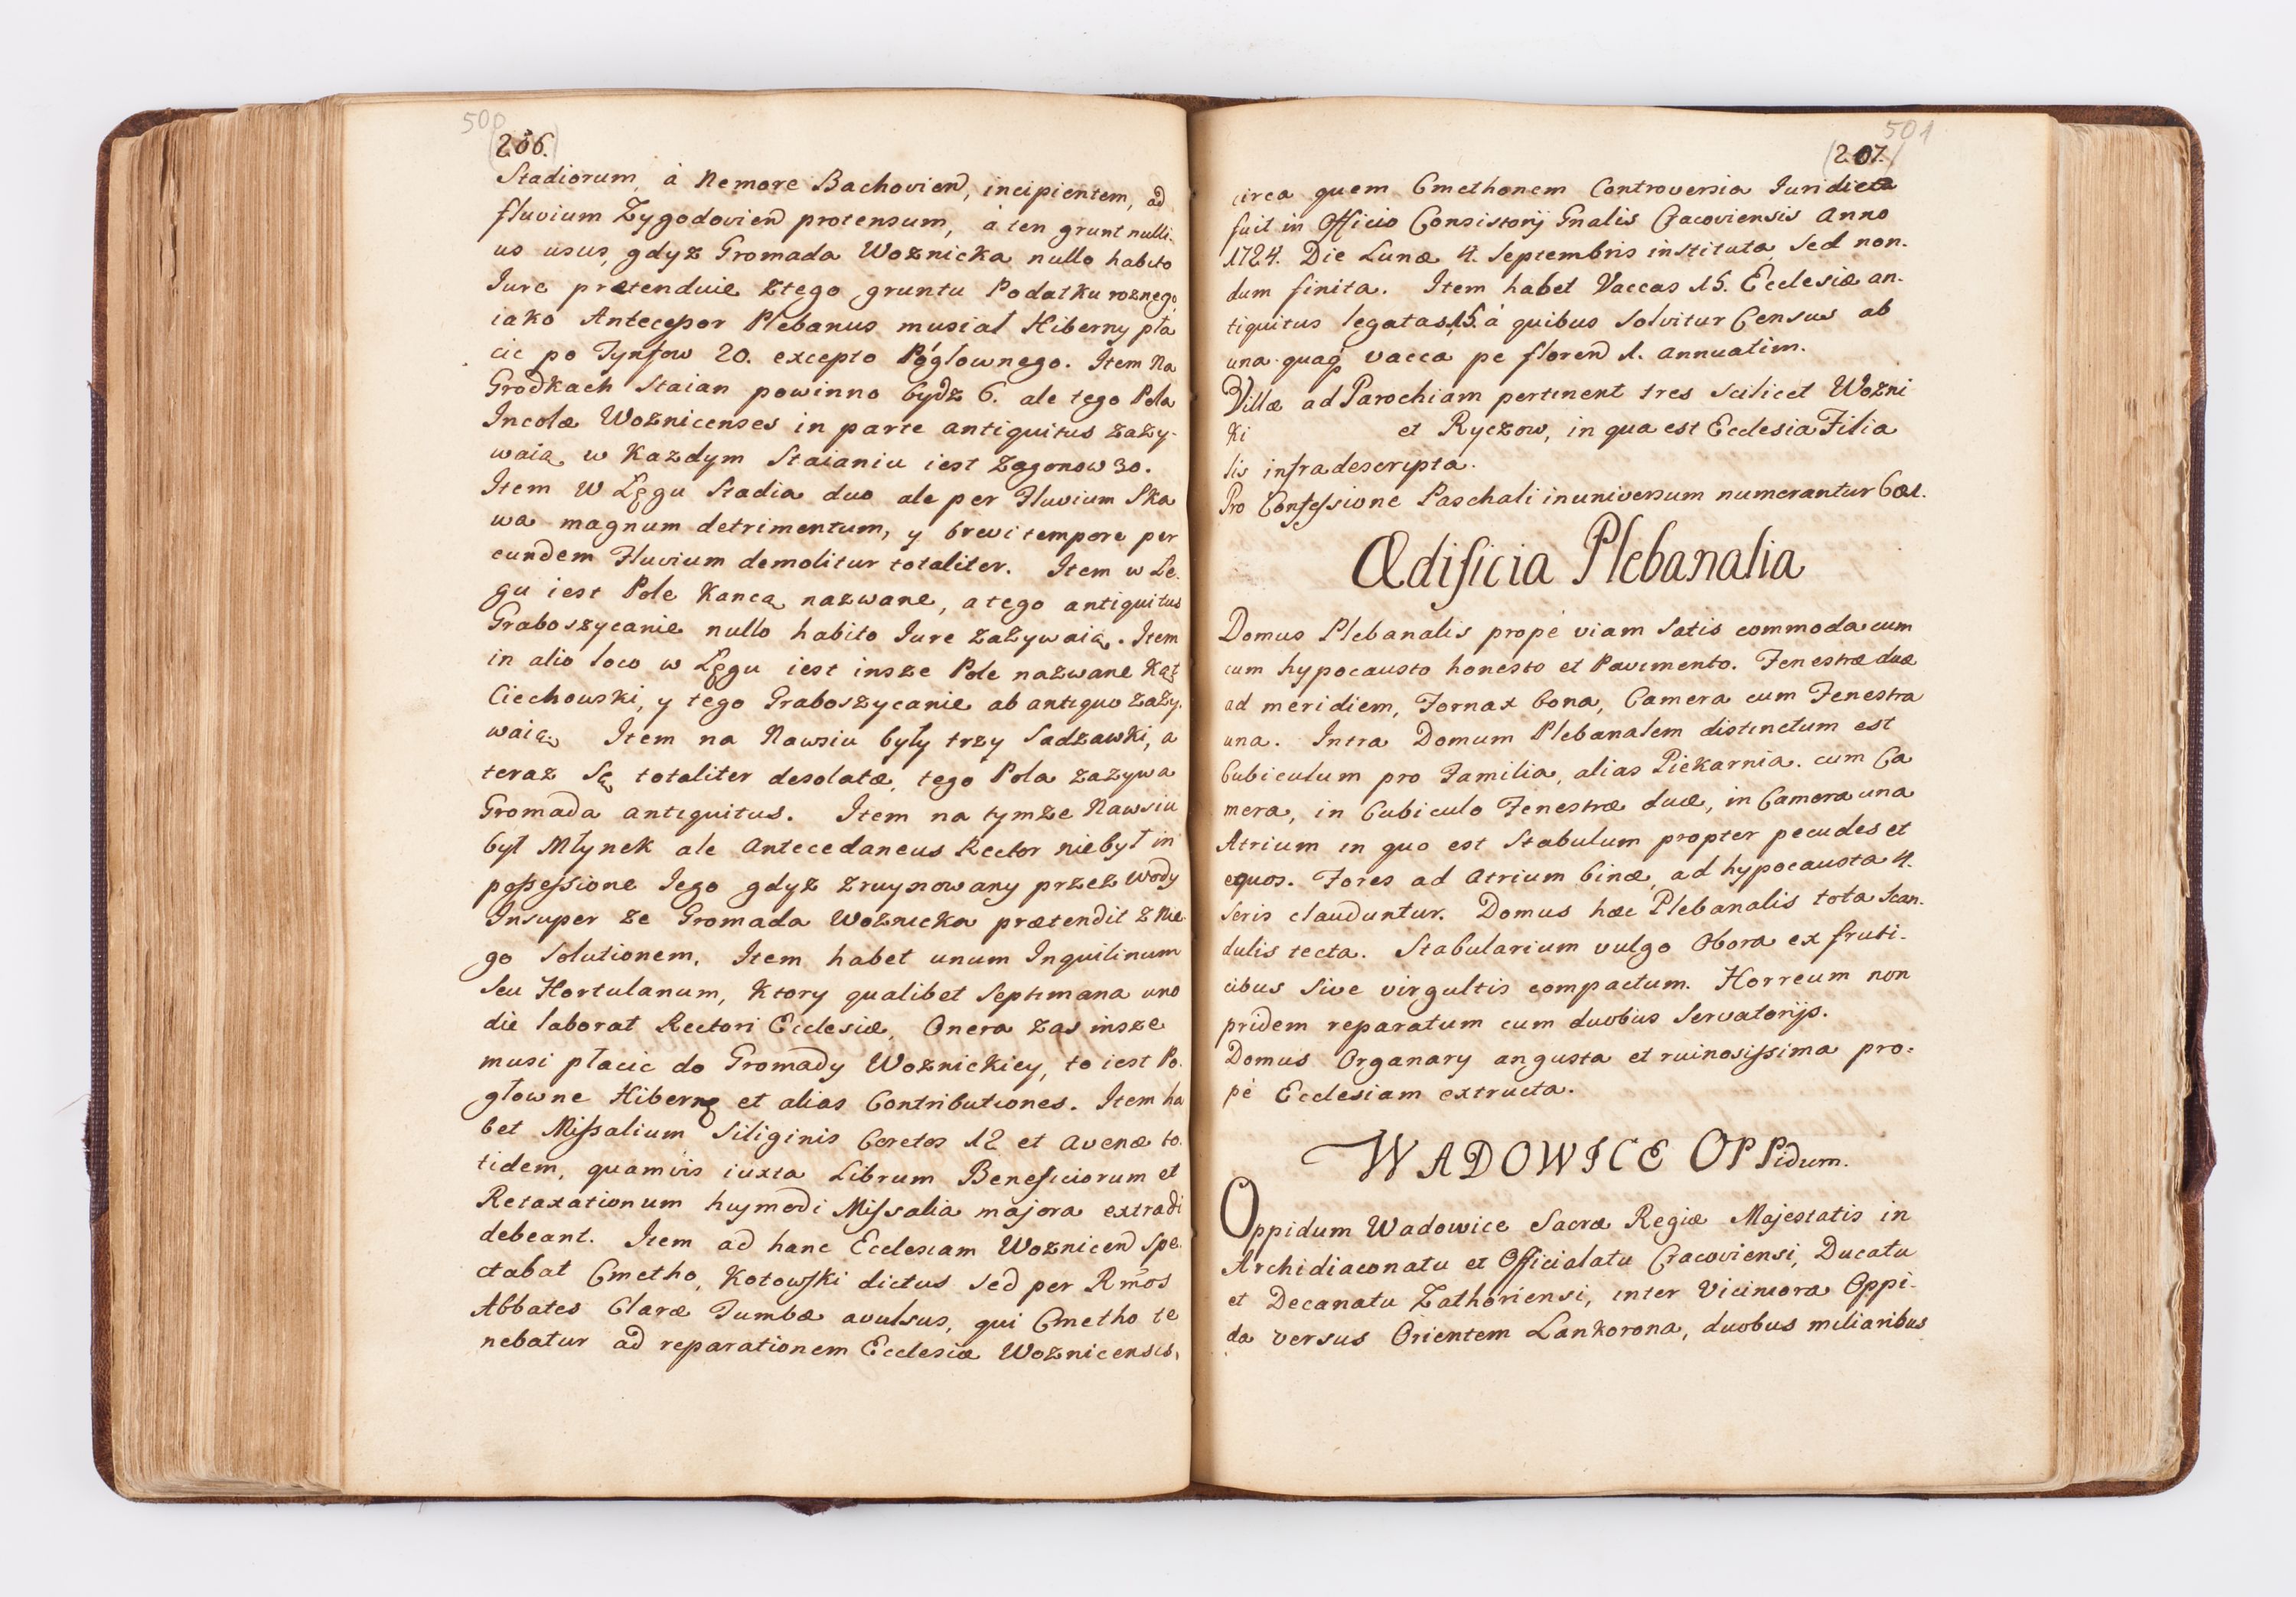 500
206.
Stadiorum, à Nemore Bachovien̄, incipientem, ad
fluvium Zygodovien̄ protensum, à ten grunt nulli-
us usus, gdyz Gromada Woznicka nullo habito
Jure prætenduie ztego gruntu Podatku roznego,
iako Antecessor Plebanus musiał Hiberny pła
cic po Tynfow 20. excepto Pógłownego. Item Na
Grodkach Staian powinno bydz 6. ale tego Pola
Incolæ Woznicenses in parte antiquitus zazy-
waią w Kazdym Staianiu iest Zagonow 30.
Item W Lęgu Stadia duo ale per Fluvium Ska
wa magnum detrimentum, y brevi tempore per
eundem Fluvium demolitur totaliter. Item w Lę-
gu iest Pole Kanca nazwane, a tego antiquitus
Graboszycanie nullo habito Jure zazywaią. Item
in alio loco w Lęgu iest insze Pole nazwane Kąt
Ciechowski, y tego Graboszycanie ab antiquo zazy-
waią. Item na Nawsiu były trzy Sadzawki, a
teraz Są totaliter desolatæ, tego Pola zazywa
Gromada antiquitus. Item na tymze Nawsiu
był Młynek ale Antecedaneus Rector niebył in
possessione Iego gdyz zruynowany przez Wody
Insuper ze Gromada Woznicka prætendit z nie
go Solutionem. Item habet unum Inquilinum
Seu Hortulanum, Ktory qualibet Septimana uno
die laborat Rectori Ecclesiæ, Onera zas insze
musi płacic do Gromady Woznickiey, to iest Po-
głowne Hibernę et alias Contributiones. Item ha
bet Missalium Siliginis Coretos 12 et Avenæ to-
tidem, quamvis iuxta Librum Beneficiorum et
Retaxationum hujmodi Missalia majora extradi
debeant. Item ad hanc Ecclesiam Woznicen̄ Spe-
ctabat Cmetho, Kotowski dictus Sed per Rm̄os
Abbates Claræ Tumbæ avulsus, qui Cmetho te
nebatur ad reparationem Ecclesiæ Woznicensis,
501
207.
circa quem Cmethonem Controversia Juridica
fuit in Officio Consistorij Gnalis Cracoviensis Anno
1724. Die Lunæ 4. Septembris instituta, Sed non-
dum finita. Item habet Vaccas 15. Ecclesiæ an-
tiquitus legatas 15. à quibus Solvitur Census ab
una quaq̃ vacca pe floren̄ 1. annuatim.
Villæ ad Parochiam pertinent tres Scilicet Wozni
ki et Ryczow, in qua est Ecclesia Filia
lis infradescripta.
Pro Confessione Paschali in universum numerantur 601.
Ædificia Plebanalia
Domus Plebanalis propè viam Satis commoda cum
cum hypocausto honesto et Pavimento. Fenestræ duæ
ad meridiem, Fornax bona, Camera cum Fenestra
una. Intra Domum Plebanalem distinctum est
Cubiculum pro Familia, alias Piekarnia. cum Ca
mera, in Cubiculo Fenestræ duæ, in Camera una
Atrium in quo est Stabulum propter pecudes et
equos. Fores ad Atrium binæ, ad hypocausta 4.
Seris clauduntur. Domus hæc Plebanalis tota Scan-
dulis tecta. Stabularium vulgo Obora ex fruti-
cibus Sive virgultis compactum. Horreum non
pridem reparatum cum duobus Servatorijs.
Domus Organary angusta et ruinosissima pro-
pè Ecclesiam extructa.
WADOWICE OPPidum.
Oppidum Wadowice Sacræ Regiæ Majestatis in
Archidiaconatu et Officialatu Cracoviensi, Ducatu
et Decanatu Zathoriensi, inter Viciniora Oppi-
da versus Orientem Lankorona, duobus miliaribus